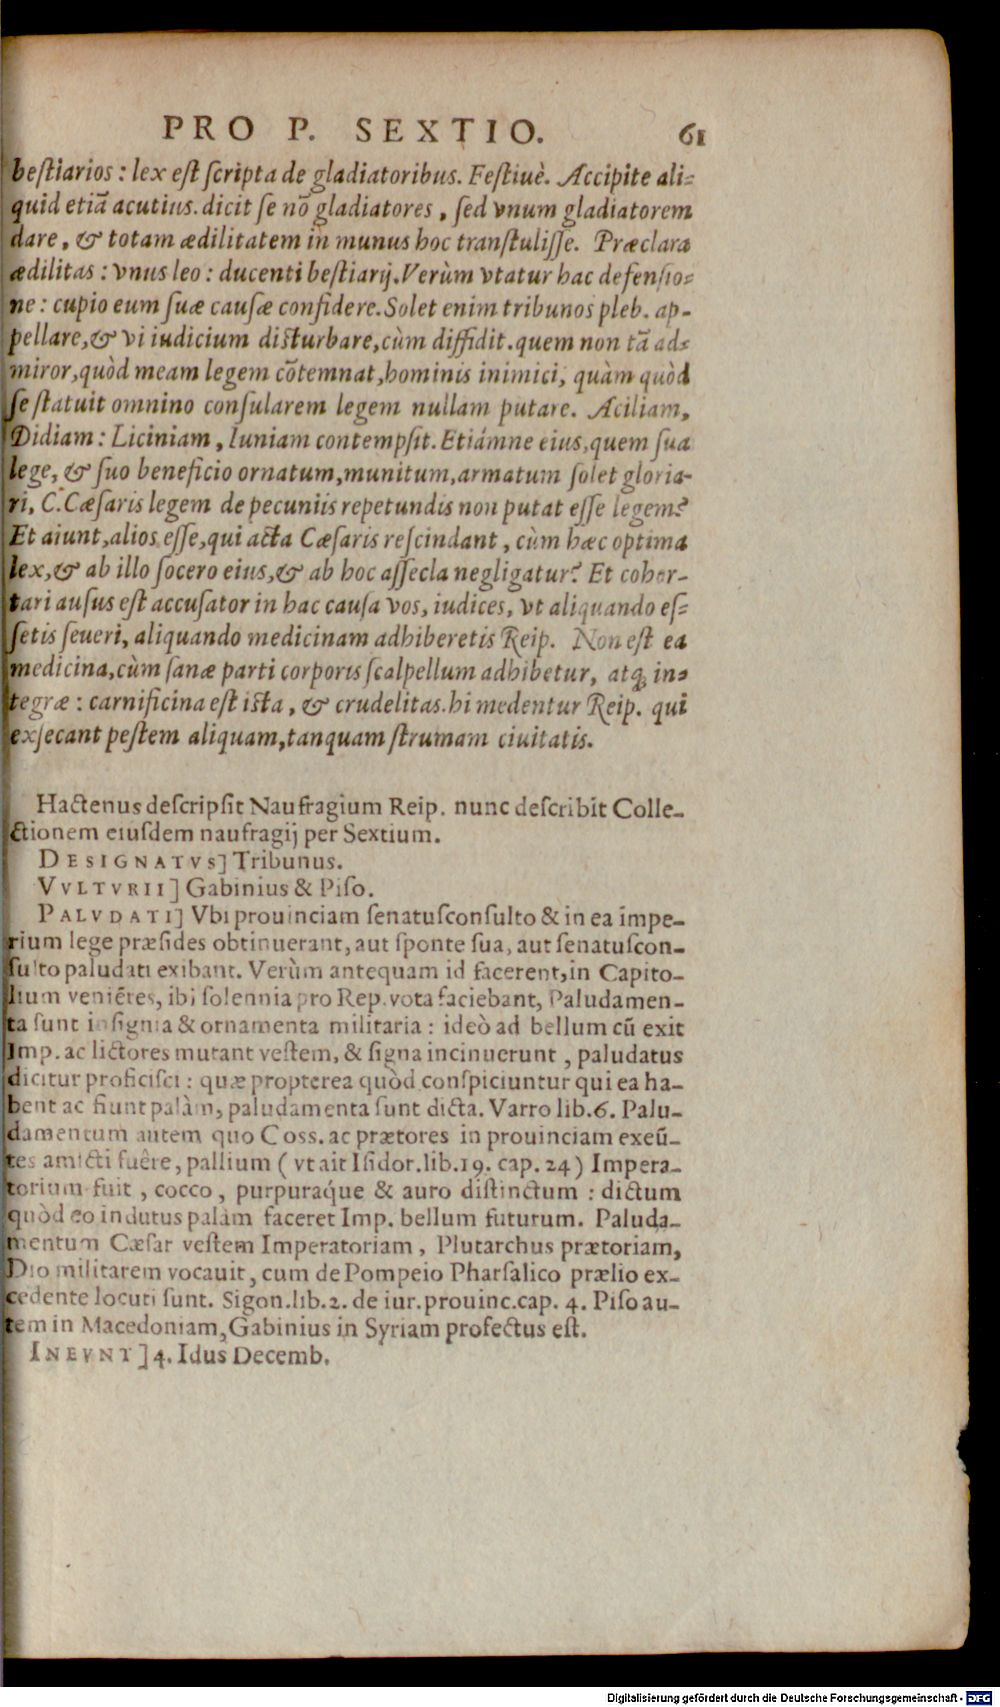 PRO P. SEXTIO. 61
bestiarios: lex est scripta de gladiatoribus. Festiuè. Accipite ali-
quid etiã acutius. dicit se nõ gladiatores, sed vnum gladiatorem
dare, & totam ædilitatem in munus hoc transtulisse. Præclara
ædilitas: vnus leo: ducenti bestiarij. Verùm vtatur hac defensio-
ne: cupio eum suæ causæ confidere. Solet enim tribunos pleb. ap-
pellare, & vi iudicium disturbare, cùm diffidit. quem non tã ad-
miror, quòd meam legem cõtemnat, hominis inimici, quàm quòd
se statuit omnino consularem legem nullam putare. Aciliam,
Didiam: Liciniam, Iuniam contempsit. Etiámne eius, quem sua
lege, & suo beneficio ornatum, munitum, armatum solet gloria-
ri, C. Cæsaris legem de pecuniis repetundis non putat esse legem?
Et aiunt, alios esse, qui acta Cæsaris rescindant, cùm hæc optima
lex, & ab illo socero eius, & ab hoc assecla negligatur? Et cohor-
tari ausus est accusator in hac causa vos, iudices, vt aliquando es-
setis seueri, aliquando medicinam adhiberetis Reip. Non est ea
medicina, cùm sanæ parti corporis scalpellum adhibetur, atq; in-
tegræ: carnificina est ista, & crudelitas. hi medentur Reip. qui
exsecant pestem aliquam, tanquam strumam ciuitatis.
Hactenus descripsit Naufragium Reip. nunc describit Colle-
ctionem eiusdem naufragij per Sextium.
DESIGNATVS] Tribunus.
VVLTVRII] Gabinius & Piso.
PALVDATI] Vbi prouinciam senatusconsulto & in ea impe-
rium lege præsides obtinuerant, aut sponte sua, aut senatuscon-
sulto paludati exibant. Verùm antequam id facerent, in Capito-
lium veniẽtes, ibi solennia pro Rep. vota faciebant, Paludamen-
ta sunt insignia & ornamenta militaria: ideò ad bellum cũ exit
Imp. ac lictores mutant vestem, & signa incinuerunt, paludatus
dicitur proficisci: quæ propterea quòd conspiciuntur qui ea ha-
bent ac fiunt palàm, paludamenta sunt dicta. Varro lib. 6. Palu-
damentum autem quo Coss. ac prætores in prouinciam exeũ-
tes amicti fuêre, pallium (vt ait Isidor. lib. 19. cap. 24) Impera-
torium fuit, cocco, purpuraq́ue & auro distinctum: dictum
quòd eo indutus palàm faceret Imp. bellum futurum. Paluda-
mentum Cæsar vestem Imperatoriam, Plutarchus prætoriam,
Dio militarem vocauit, cum de Pompeio Pharsalico prælio ex-
cedente locuti sunt. Sigon. lib. 2. de iur. prouinc. cap. 4. Piso au-
tem in Macedoniam, Gabinius in Syriam profectus est.
INEVNT] 4. Idus Decemb.
Digitalisierung gefördert durch die Deutsche Forschungsgemeinschaft - DFG